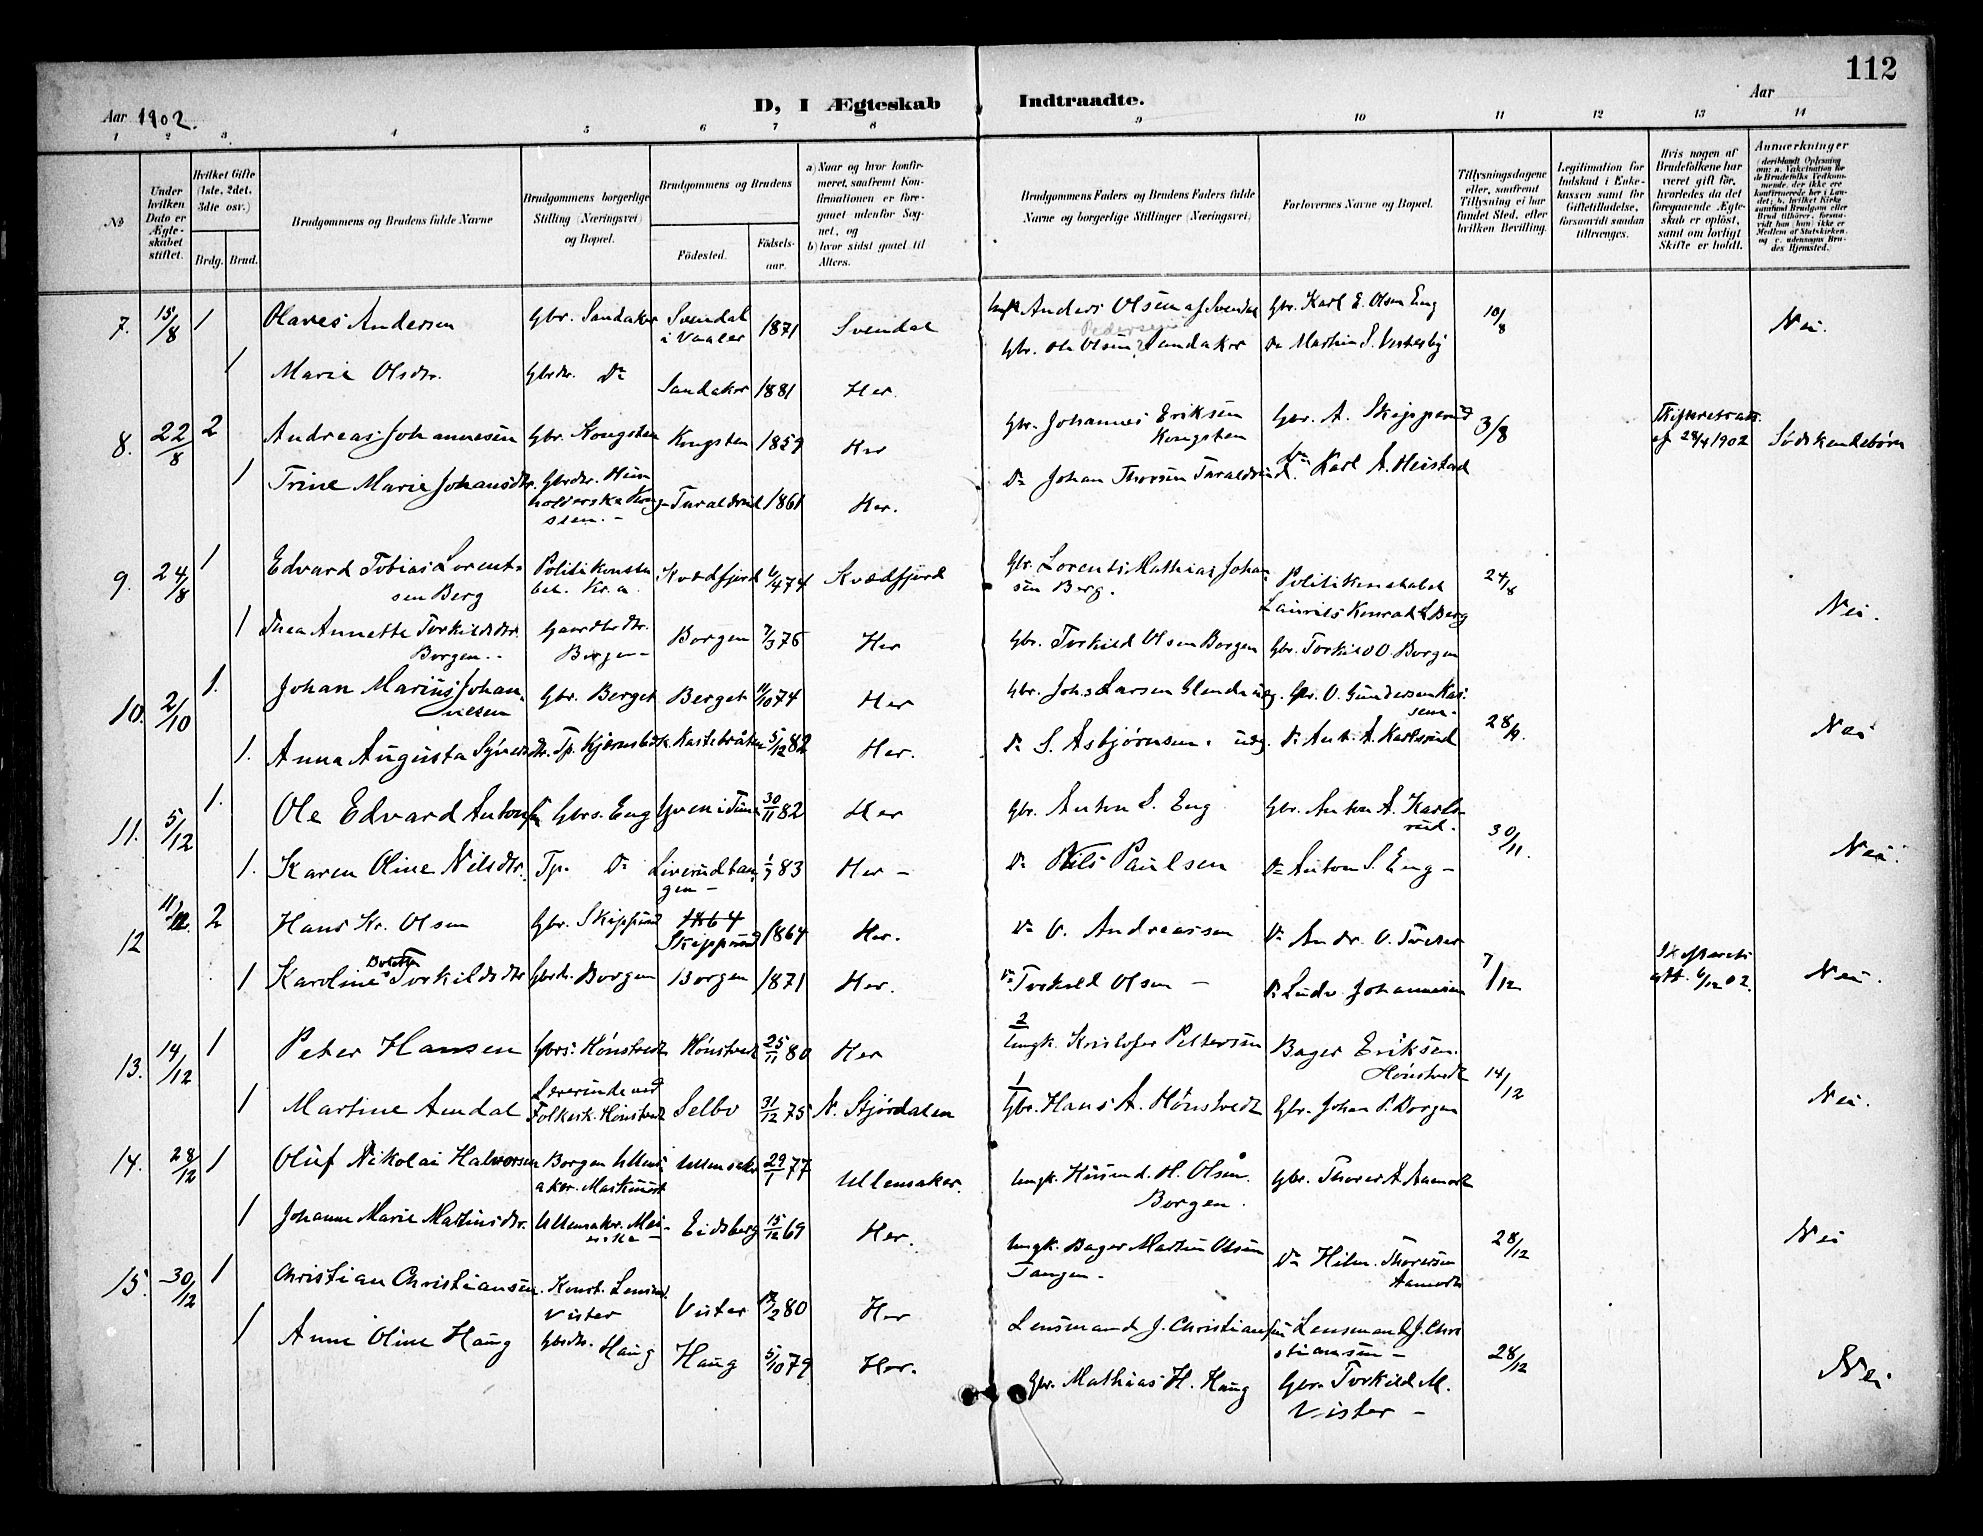 112
D, I Ægteskab Indtraadte.
Aar 1902.
Aar
1 2 3 4 5 6 7 8 9 10 11 12 13 14
No
Under hvilken Dato er Ægteskabet stiftet.
Hvilket Gifte (1ste, 2det, 3die osv.)
Brdg. Brud.
Brudgommens og Brudens fulde Navne
Brudgommens borgerlige Stilling (Næringsvei) og Bopæl.
Brudgommens og Brudens
Födested.
Födselsaar.
a) Naar og hvor konfirmeret, saafremt Konfirmationen er foregaaet udenfor Sognet, og
b) hvor sidst gaaet til Alters.
Brudgommens Faders og Brudens Faders fulde Navne og borgerlige Stillinger (Næringsvei)
Forlovernes Navne og Bopæl.
Tillysningsdagene eller, saafremt Tillysning ei har fundet Sted, efter hvilken Bevilling.
Legitimation for Indskud i Enkekassen samt for Giftetilladelse, forsaavidt saadan tiltrænges.
Hvis nogen af Brudefolkene har været gift før, hvorledes da det foregaaende Ægteskab er opløst, samt om lovligt Skifte er holdt.
Anmærkninger
7. 15/8 1 Olaves Andersen Gbr. Sandaker Svendal i Vaaler 1871 Svendal Anders Olsen af Svendal Gbr. Karl E. Olsen Eng 10/8 Nei.
1 Marie Olsdtr. Gbrdtr. Do Sandaker 1881 Her. Gbr. Ole Olsen Sandaker Do Martin S. Vestesby
Pedersen?
8. 22/8 2 Andreas Johannesen Gbr. Kongsten Kongsten 1859 Her Gbr. Johannes Eriksen Kongsten Gbr. A. Skipperud 3/8 Skifteretsatt. af 28/4 1902 Sødskendebørn
1 Trine Marie Johansdtr. Gbrdtr. Husholderske Kongsten. Taraldrud 1861 Her. Do Johan Thorsen Taraldrud. Do Karl A. Heistad
9. 24/8 1 Edvard Tobias Lorentsen Berg Politikonstabel. Kr.a. Kvædfjord 6/4 74 Kvædfjord Gbr. Lorents Mathias Johansen Berg. Politikonstabel Laurits Konrad L. Berg 24/8 Nei.
1 Thea Annette Torkildsdtr. Borgen. Gaardbrdtr. Borgen Borgen 7/3 76 Her Gbr. Torkild Olsen Borgen Gbr. Torkild O. Borgen
10. 2/10 1. Johan Marius Johannesen Gbr. Berget Berget 11/10 74 Her Gbr. Johs Larsen Glenda Gbr. O. Gundersen 28/9. Nei
1. Anna Augusta Syversdtr. Tp. Kjernsbæk. Kastebråten 5/12 82 Her. Do S. Asbjørnsen. Do Ant. A. Karlsrud
11. 5/12 1. Ole Edvard Antonsen Gbrs. Eng Gren i Tune 30/11 82 Her Gbr. Anton S. Eng Gbr. Anton A. Karlsrud. 30/11. Nei.
1. Karen Oline Nilsdtr. Tp. Do Liverudtangen 1/7 83 Her Do Nils Paulsen Do Anton S. Eng
12 11/12. 2 Hans Kr. Olsen Gbr. Skipperud 1864 Skipperud 1864 Her. Do O. Andreassen Do Andr. O. 7/12 Skifterets att. 6/12 02. Nei.
1 Karoline Bolette Torkildsdtr Gbrdr. Borgen Borgen 1871 Her. Do Torkild Olsen Do Ludv. Johannesen
13. 14/12 1 Peter Hansen Gbrs. Hönstvedt Hönstvedt 25/11 80 Her 2 Ungk. Kristofer Pettersen Bager Eriksen. Hönstvedt 14/12 Nei.
1 Martine Amdal Lærerinde ved Folkesk. Hönstvedt Selbo 31/12 75 N. Stjördalen 1 Gbr. Hans A. Hönstvedt Gbr. Johan P. Borgen
14. 28/12 1 Oluf Nikolai Halvorsen Borgen Ullensaker. Ullensaker 29/1 77 Ullensaker. Ungk. Husmd. H. Olsen. Borgen. Gbr. Thorer A. Aamodt 28/12 Nei
1 Johanne Marie Martinsdtr. Ullensaker. Meierske Eidsberg 15/12 69 Her. Ungk. Bager Martin Olsen Tangen. Do Hilm. Thoresen Aamodt
15. 30/12 1 Christian Christiansen Konst. Lensmd. Vister Vister 18/2 80 Her Lensmand J. Christiansen Lensmand J. Christiansen 28/12 Nei
1 Anne Oline Haug Gbrdtr. Haug Haug 5/10 79 Her. Gbr. Mathias H. Haug Gbr. Torkild M. Vister